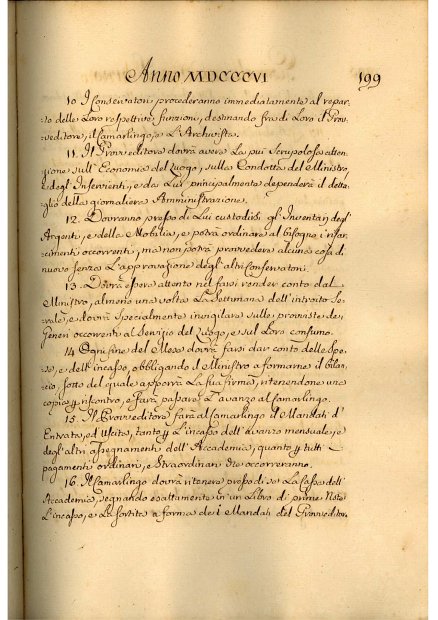 Anno MDCCCVI 199
10. I Conservatori procederanno immediatamente al repar-
to delle Loro respettive funzioni, destinando fra di Loro il Prov-
veditore, il Camarlingo, e L'Archivista.
11. Il Provveditore dovrà avere La più Scrupolosa atten-
zione sull'Economia del Luogo, sulla Condotta del Ministro,
e degl'Inservienti, e da Lui principalmente dependerà il detta-
glio della giornaliera Amministrazione.
12. Dovranno presso di Lui custodirsi gl'Inventarj degl'
Argenti, e della Mobilia, e potrà ordinare al bisogno i risar-
cimenti occorrenti, ma non potrà provvedere alcuna cosa di
nuovo senza L'approvazione degl'altri Conservatori.
13. Dovrà essere attento nel farsi render conto dal
Ministro, almeno una volta La Settimana dell'introito Se-
rale, e dovrà specialmente invigilare sulle provviste de
Generi occorrenti al Servizio del Luogo, e sul Loro consumo.
14. Ogni fine del Mese dovrà farsi dar conto delle Spe-
se, e dell'incasso, obbligando il Ministro a formarne il bilan-
cio, sotto del quale apporrà La sua firma, ritenendone una
copia p. riscontro, e farà passare L'avanzo al Camarlingo.
15. Il Provveditore farà al Camarlingo i Mandati d'
Entrata, ed Uscita, tanto p. L'incasso dell'avanzo mensuale, e
degl'altri assegnamenti dell'Accademia, quanto p. tutti i
pagamenti ordinarj, e straordinarj che occorreranno.
16. Il Camarlingo dovrà ritenere presso di se La Cassa dell'
Accademia, segnando esattamente in un Libro di prime Note
L'incasso, e La sortita a forma dei Mandati del Provveditor.